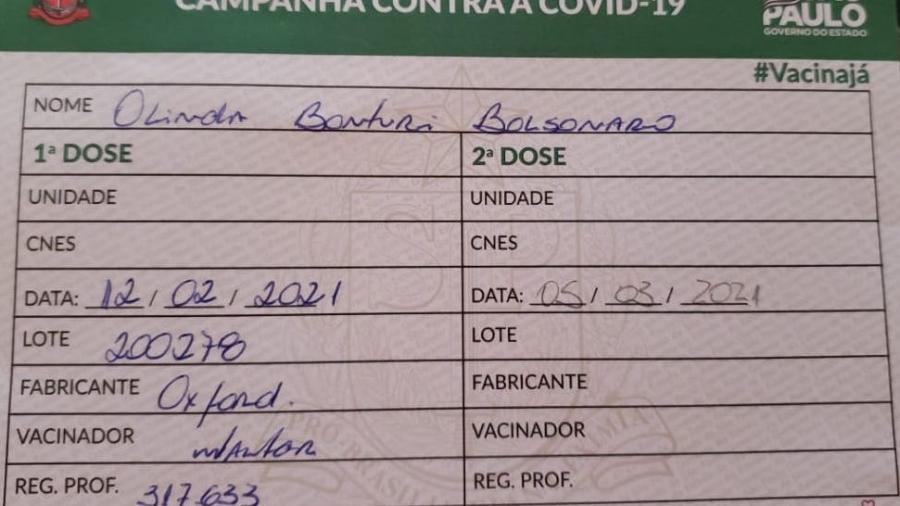 CAMPANHA CONTRA A COVID-19
PAULO
GOVERNO DO ESTADO
#Vacinajá
NOME Olinda Bonturi Bolsonaro
1ª DOSE 2ª DOSE
UNIDADE UNIDADE
CNES CNES
DATA: 12 / 02 / 2021 DATA: 05 / 03 / 2021
LOTE 200278 LOTE
FABRICANTE Oxford. FABRICANTE
VACINADOR VACINADOR
REG. PROF. 317.633 REG. PROF.